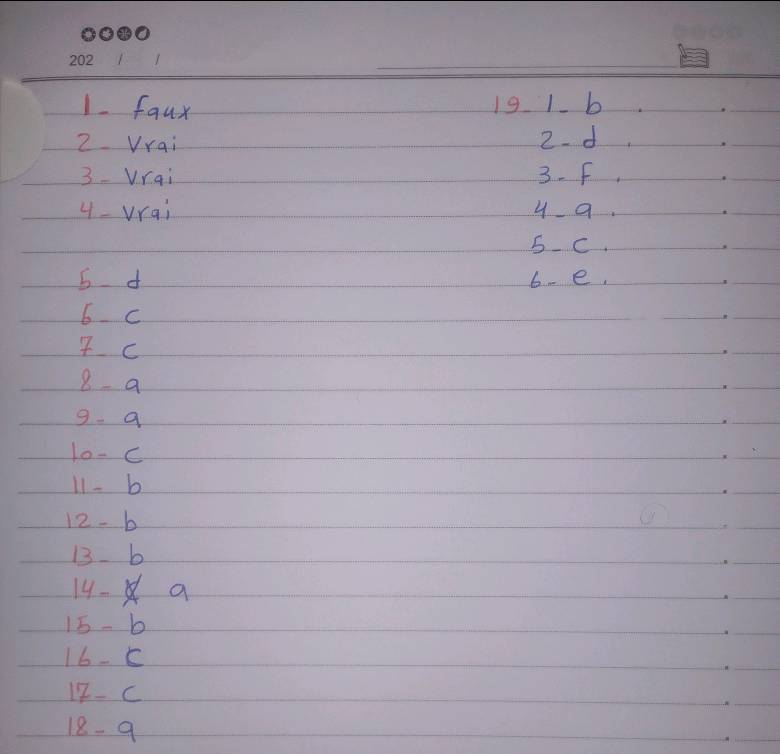 202 / /
1- Faux
2- Vrai
3- Vrai
4- Vrai
5- d
6- c
7- c
8- a
9- a
10- c
11- b
12- b
13- b
14- a
15- b
16- c
17- c
18- a
19- 1- b .
2- d .
3- f .
4- a .
5- c .
6- e .